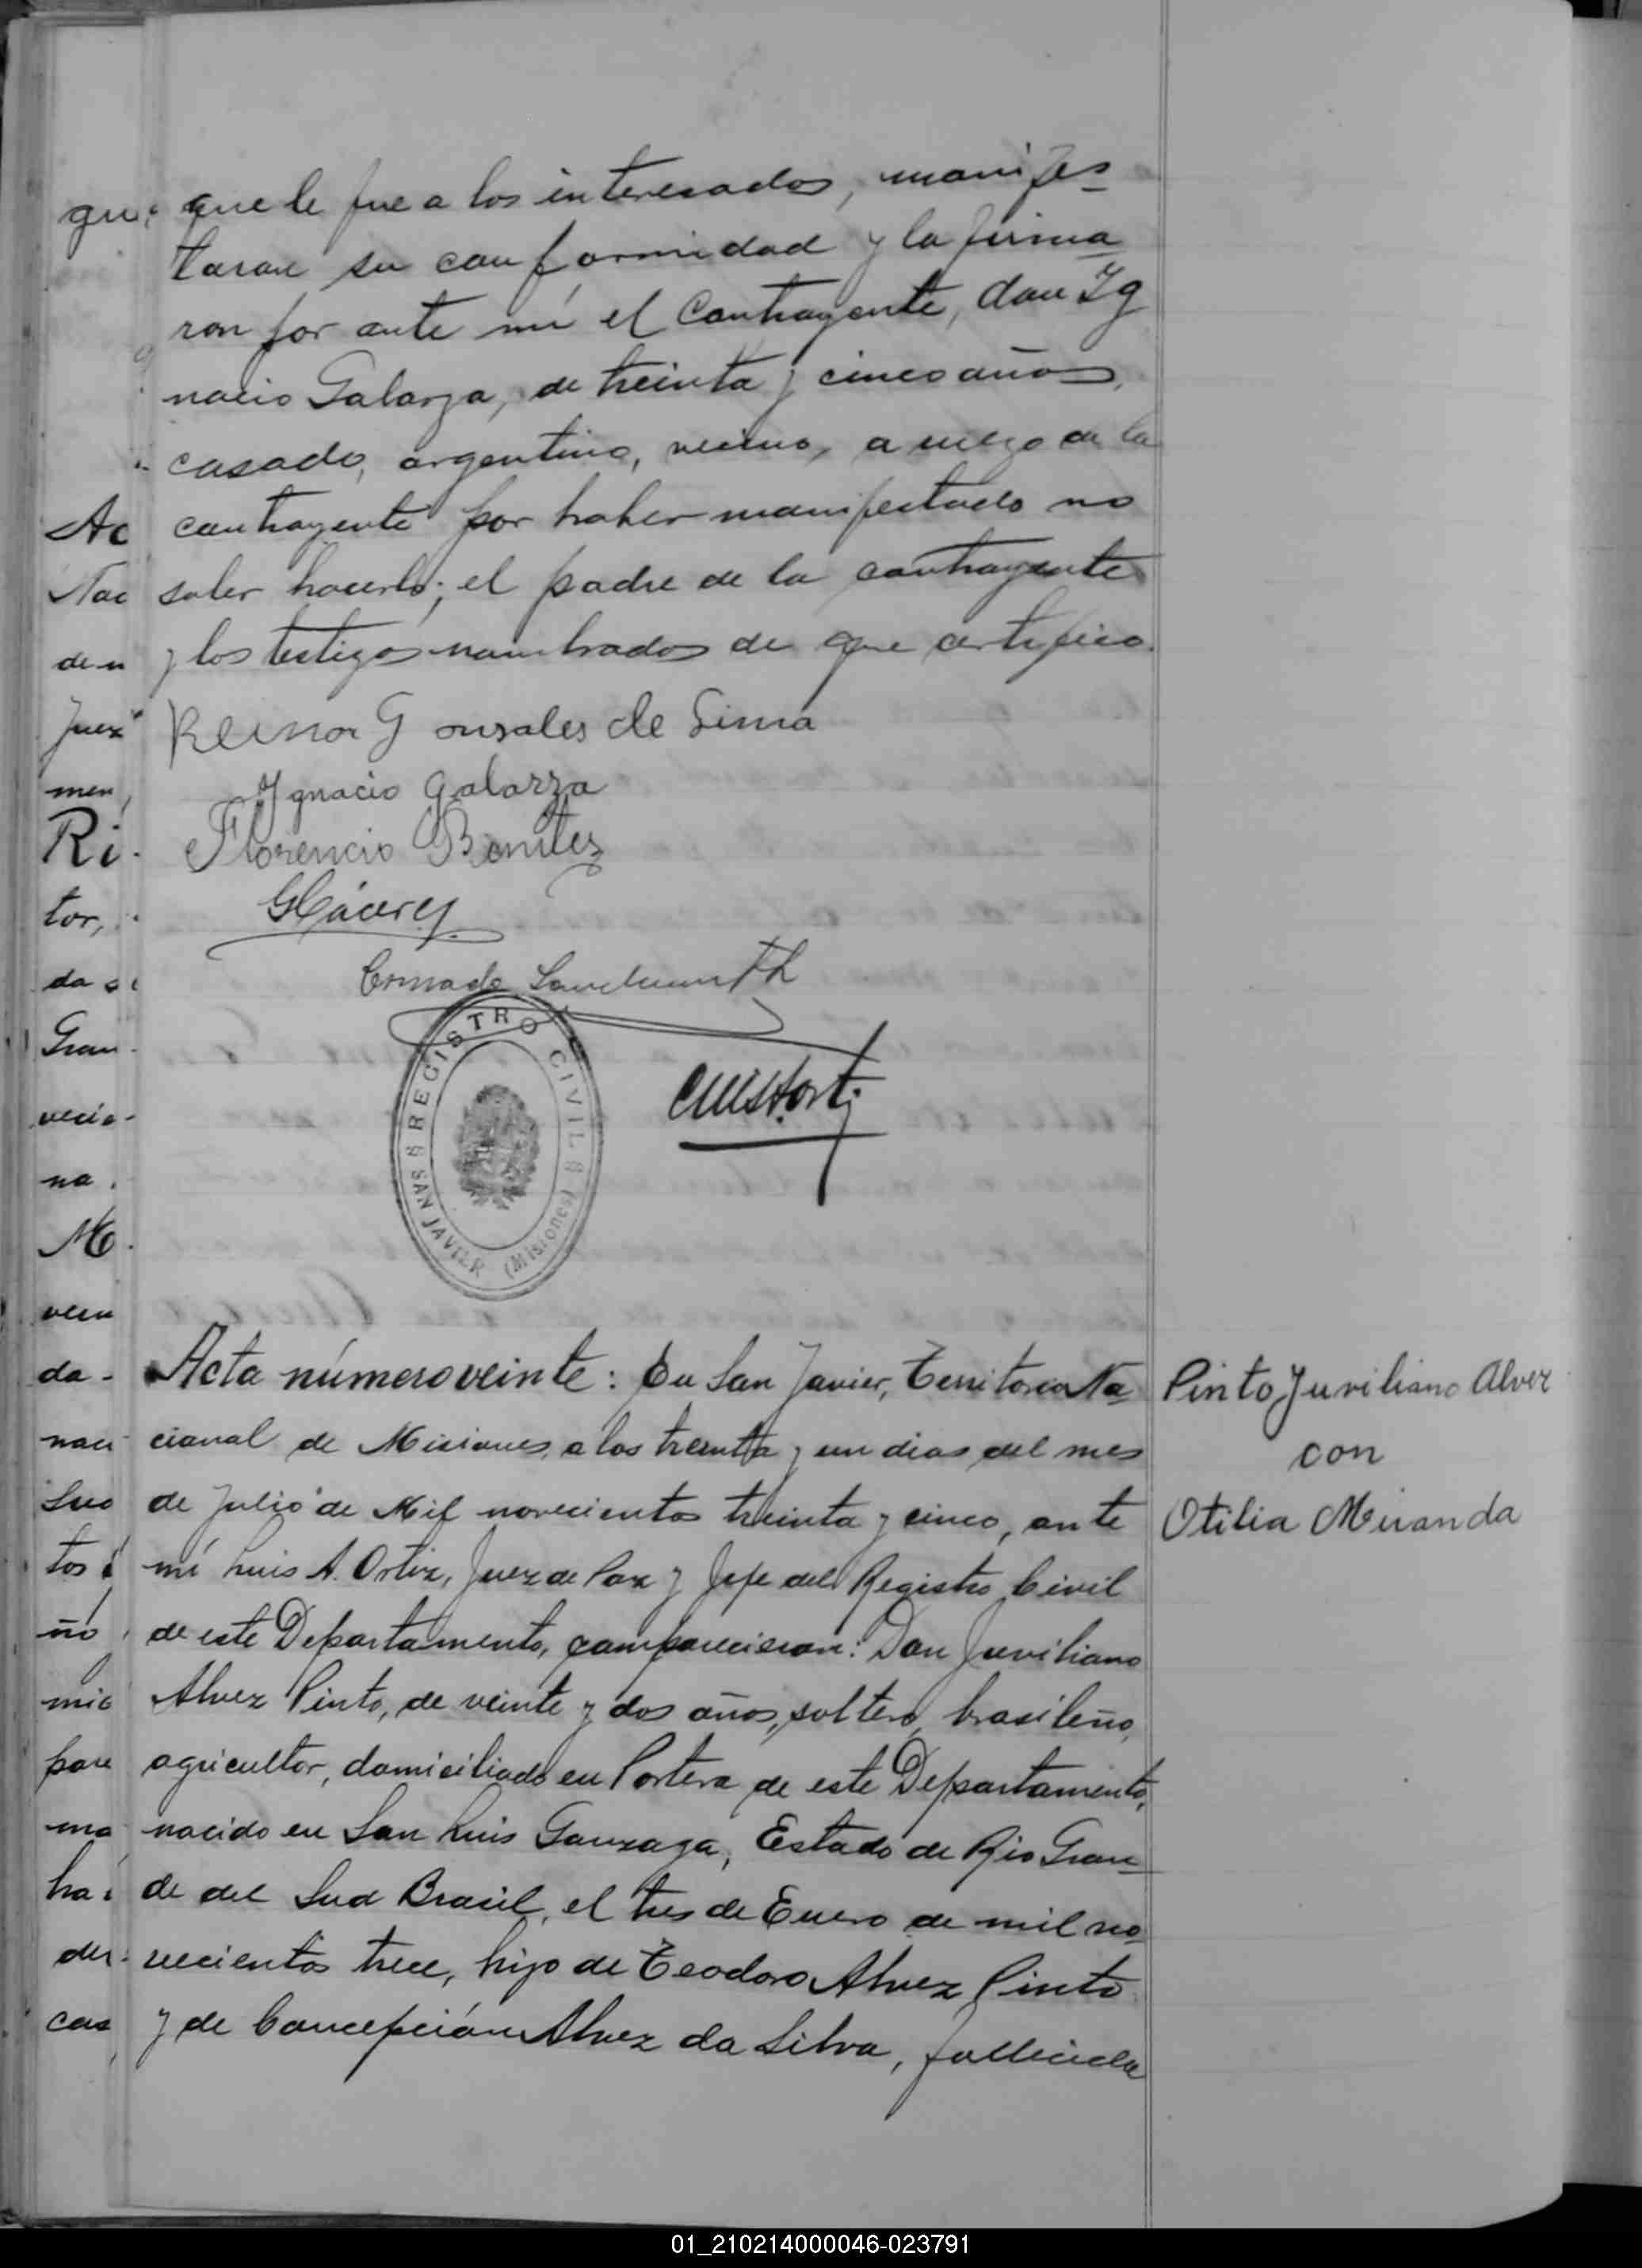 que le fue a los interesados, manifes-
taron su conformidad y la firma-
ron por ante mí el Contrayente, don Ig
nacio Galarza, de treinta y cinco años,
casado, argentino, vecino, a ruego de la
contrayente por haber manifestado no
saber hacerlo; el padre de la contrayente
y los testigos nombrados de que certifico.
Gonsales de Lima
Ignacio Galarza
Florencio Benitez
REGISTRO CIVIL
SAN JAVIER (Misiones)
Acta número veinte: En San Javier, Territorio Na-
cional de Misiones, a los treinta y un dias del mes
de Julio de Mil novecientos treinta y cinco, ante
mí Luis A. Ortiz, Juez de Paz y Jefe del Registro Civil
de este Departamento, comparecieron: Don Juviliano
Alvez Pinto, de veinte y dos años, soltero, brasileño,
agricultor, domiciliado en Portera de este Departamento,
nacido en San Luis Gonzaga, Estado de Rio Gran-
de del Sud Brasil, el tres de Enero de mil no-
vecientos trece, hijo de Teodoro Alvez Pinto
y de Concepción Alvez da Silva, fallecida
Pinto Juviliano Alvez
con
Otilia Miranda
Ac
Nac
de n
Juez
men
Ri
tor,
da
Gran
vecin
na
ven
da-
naci
Sud
tos
ño
mic
pare
ma
ha
der
cas
01_210214000046-023791